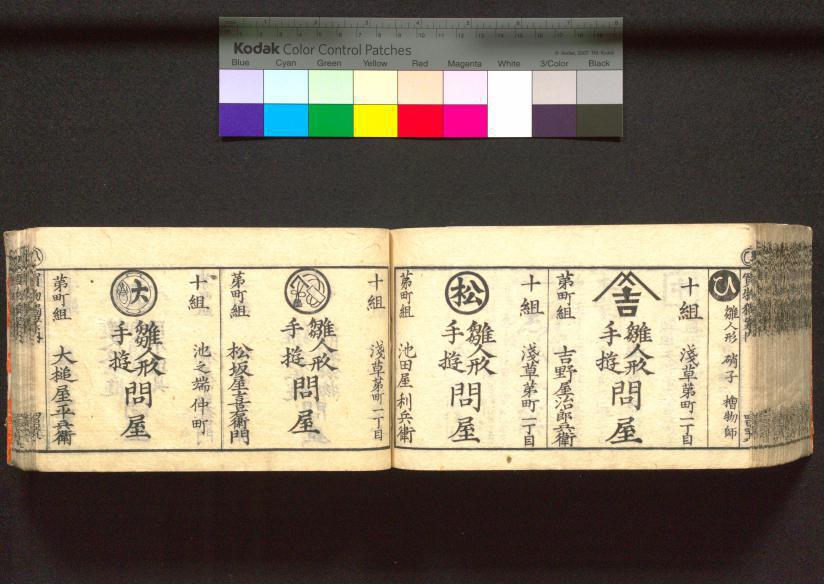 Kodak Color Control Patches
© Kodak, 2007 TM: Kodak
Blue Cyan Green Yellow Red Magenta White 3/Color Black
ひ
雛人形 硝子 檜物師
十組 淺草茅町一丁目
吉
雛人形
手遊
問屋
茅町組 吉野屋治郎兵衛
十組 淺草茅町一丁目
松
雛人形
手遊
問屋
茅町組 池田屋利兵衛
十組 淺草茅町一丁目
雛人形
手遊
問屋
茅町組 松坂屋喜右衛門
十組 池之端仲町
大
雛人形
手遊
問屋
茅町組 大槌屋平兵衛